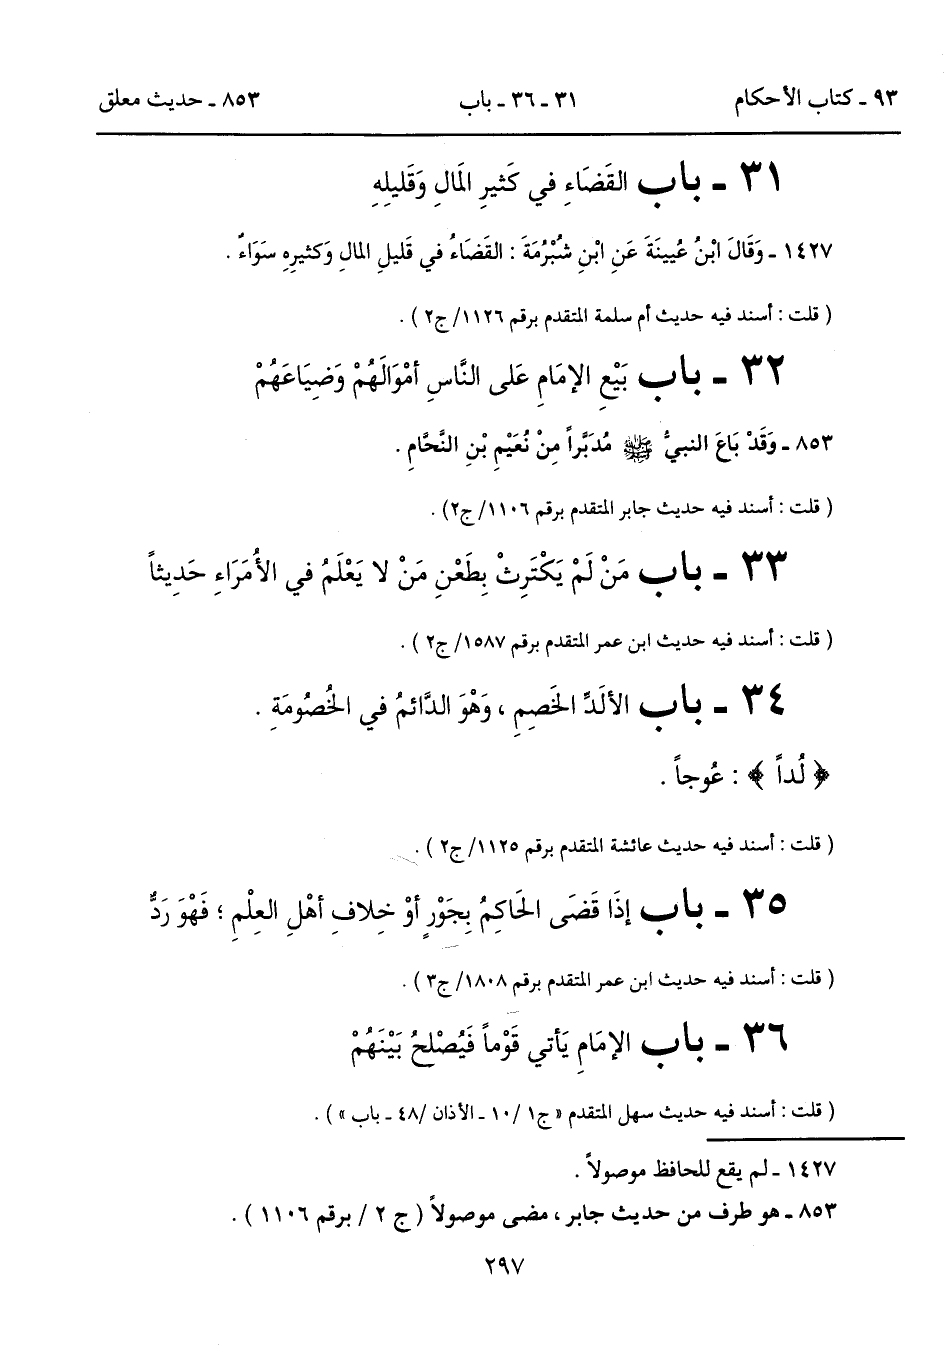 ٩٣ ـ كتاب الأحكام ٣١ ـ ٣٦ ـ باب ٨٥٣ ـ حديث معلق
٣١ ـ باب القَضَاءِ في كَثيرِ المَالِ وَقَليلِهِ
١٤٢٧ ـ وَقَالَ ابْنُ عُيينَةَ عَنِ ابْنِ شُبْرُمَةَ : القَضَاءُ في قَليلِ المالِ وَكثيرِهِ سَوَاءٌ .
( قلت : أسند فيه حديث أم سلمة المتقدم برقم ١١٢٦/ ج٢ ) .
٣٢ ـ باب بَيْعِ الإمَامِ عَلى النَّاسِ أمْوَالَهُمْ وَضِيَاعَهُمْ
٨٥٣ ـ وَقَدْ بَاعَ النبيُّ ﷺ مُدَبَّراً مِنْ نُعَيْمِ بْنِ النَّحَّامِ .
( قلت : أسند فيه حديث جابر المتقدم برقم ١١٠٦/ ج٢) .
٣٣ ـ باب مَنْ لَمْ يَكْتَرِثْ بِطَعْنِ مَنْ لا يَعْلَمُ في الأُمَرَاءِ حَدِيثاً
( قلت : أسند فيه حديث ابن عمر المتقدم برقم ١٥٨٧/ ج٢ ) .
٣٤ ـ باب الألَدِّ الخَصِمِ ، وَهْوَ الدَّائمُ في الخُصُومَةِ .
﴿ لُداً ﴾ : عُوجاً .
( قلت : أسند فيه حديث عائشة المتقدم برقم ١١٢٥/ ج٢ ) .
٣٥ ـ باب إذَا قَضَى الحَاكِمُ بِجَوْرٍ أوْ خِلافِ أهْلِ العِلْمِ ؛ فَهْوَ رَدٌّ
( قلت : أسند فيه حديث ابن عمر المتقدم برقم ١٨٠٨/ ج٣ ) .
٣٦ ـ باب الإمَامِ يَأتي قَوْماً فَيُصْلحُ بَيْنَهُمْ
( قلت : أسند فيه حديث سهل المتقدم « ج١ /١٠ ـ الأذان /٤٨ ـ باب » ) .
١٤٢٧ ـ لم يقع للحافظ موصولاً .
٨٥٣ ـ هو طرف من حديث جابر ، مضى موصولاً ( ج ٢ / برقم ١١٠٦ ) .
٢٩٧